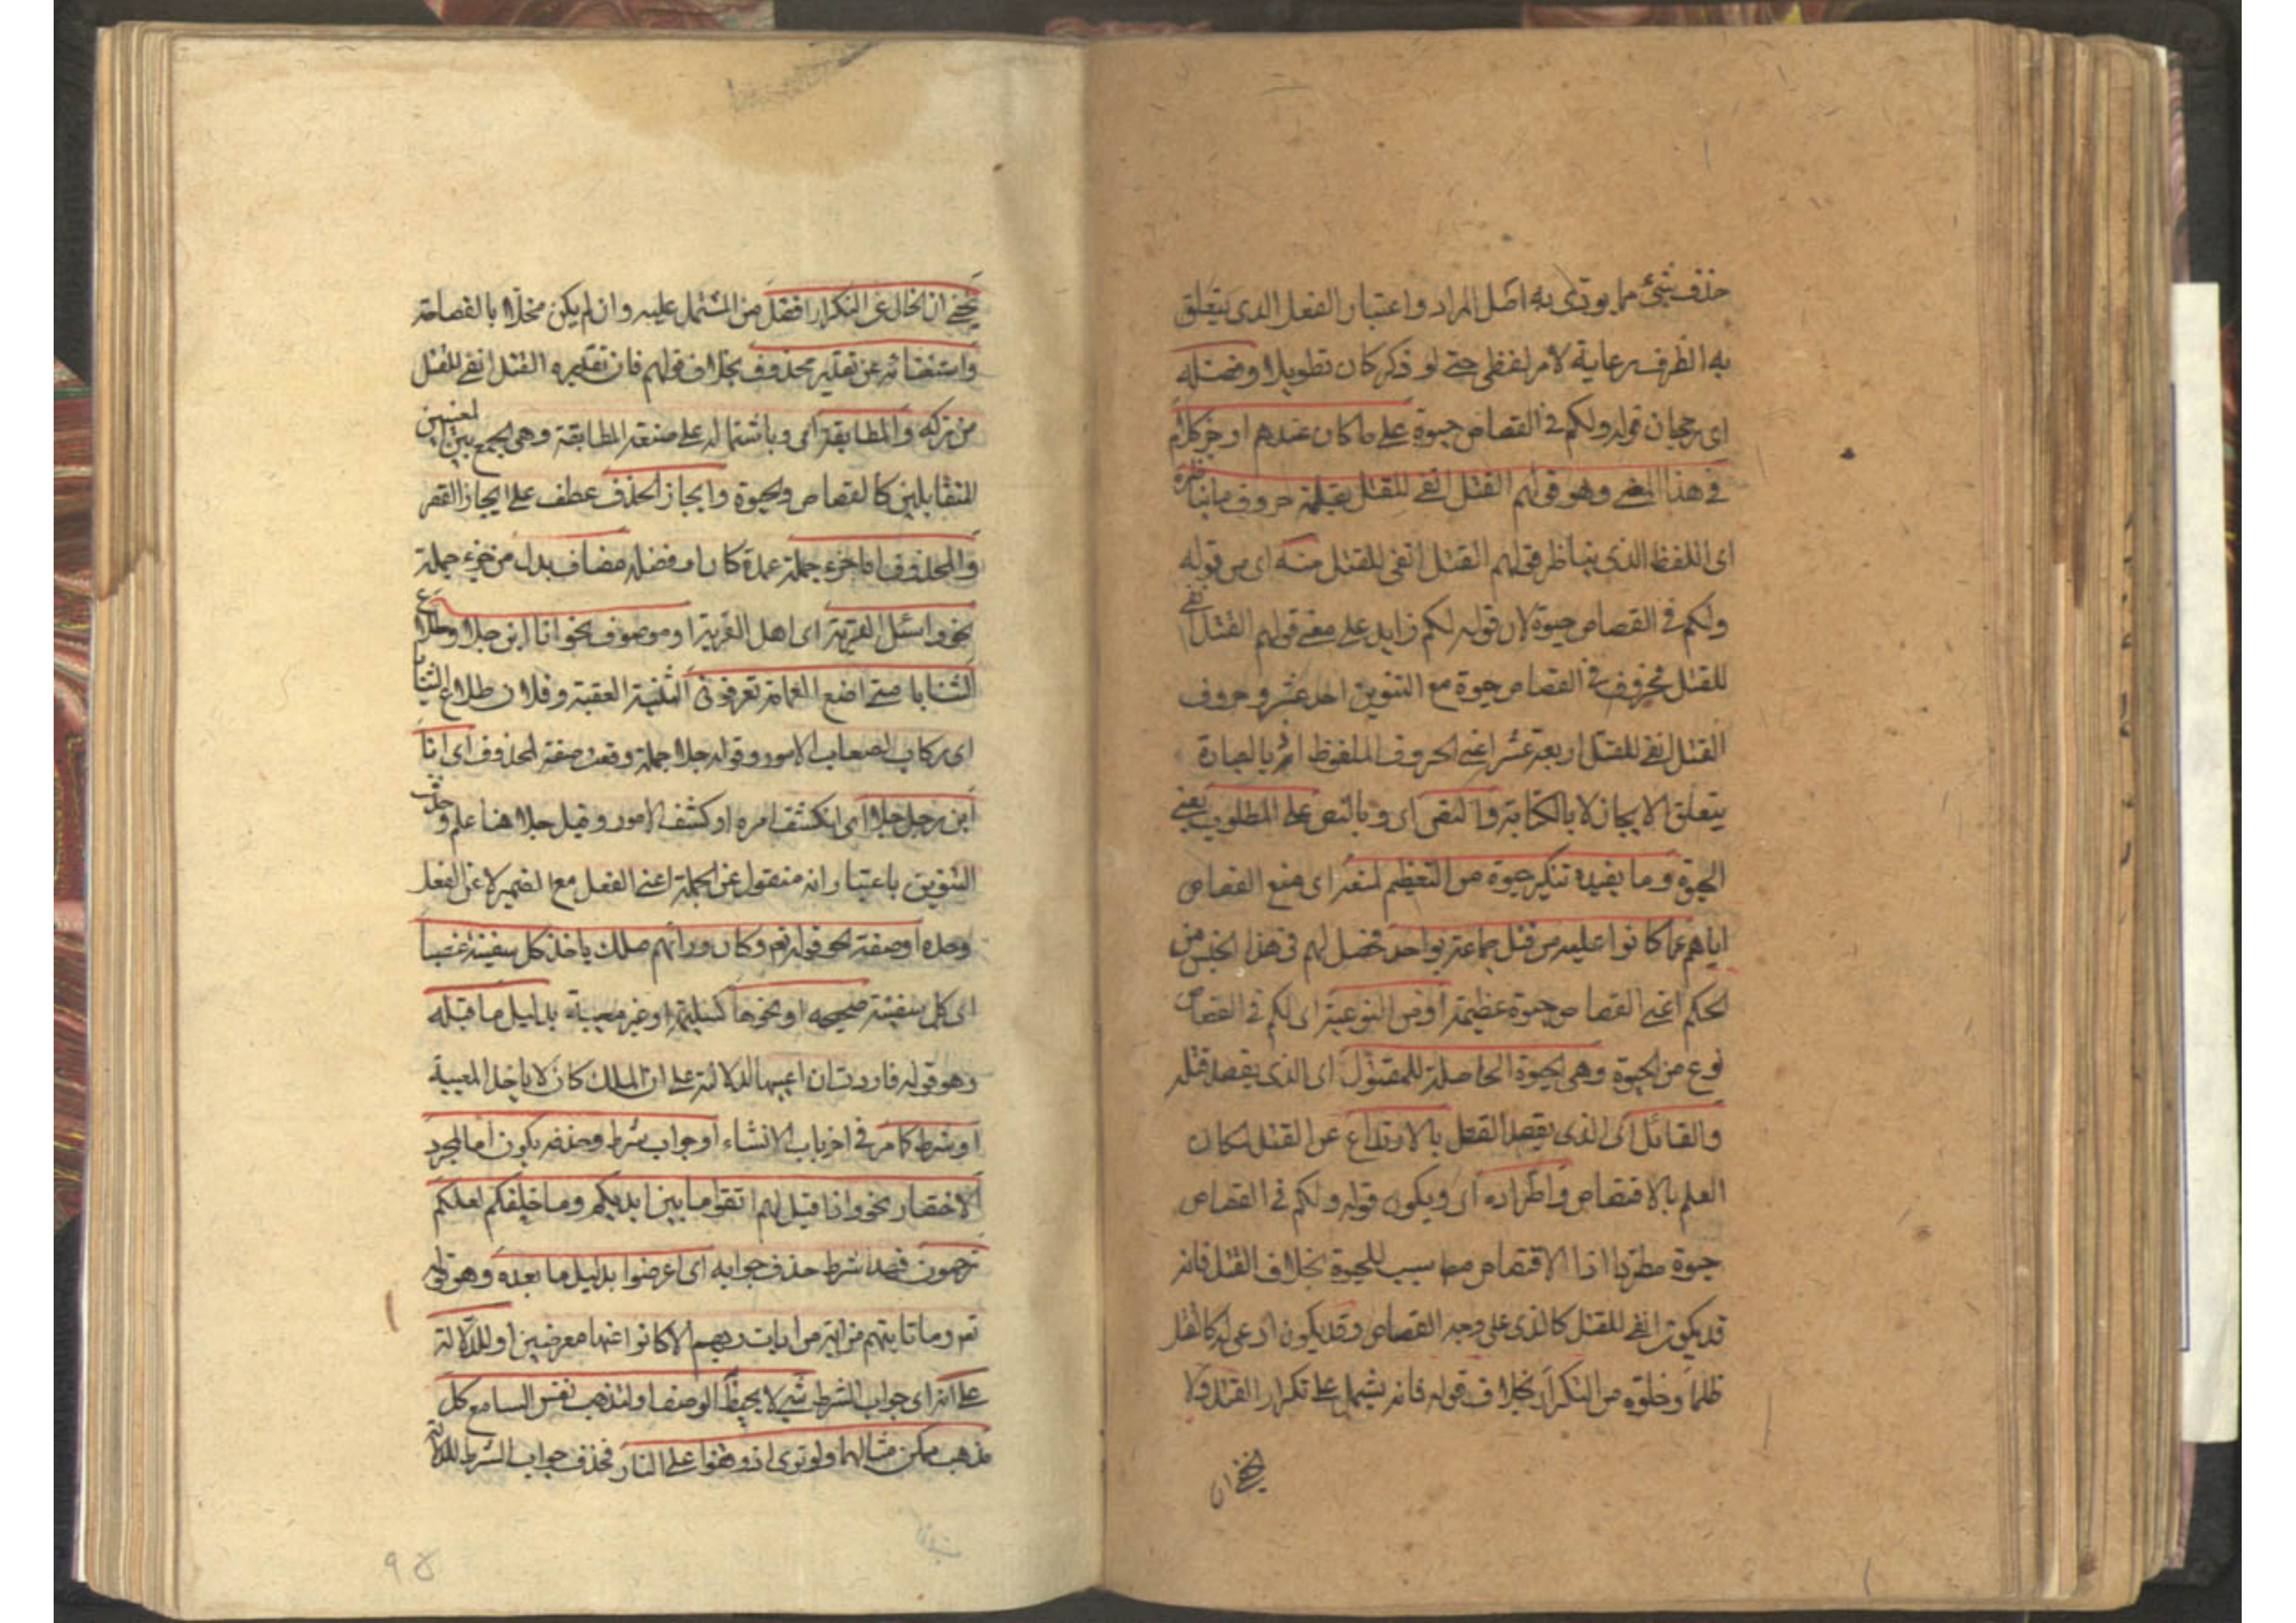 حذف شئ مما يودى به اصل المراد واعتبار الفعل الذى يتعلق
به الظرف رعاية لامر لفظى حتى لو ذكر كان تطويلا وفضله
اى رجحان قوله ولكم فى القصاص حيوة على ما كان عندهم اوجز كلام
فى هذا المعنى وهو قولهم القتل انفى للقتل بقلة حروف ما يناظره
اى اللفظ الذى يناظر قولهم القتل انفى للقتل منه اى من قوله
ولكم فى القصاص حيوة لان قوله لكم زايد على معنى قولهم القتل انفى
للقتل فحروف فى القصاص حيوة مع التنوين احد عشر وحروف
القتل انفى للقتل اربعة عشر اعنى الحروف الملفوظ اذ بالعبارة
يتعلق الايجاز لا بالكتابة والنص اى وبالنص على المطلوب يعنى
الحيوة وما يفيده تنكير حيوة من التعظيم لمنعه اى منع القصاص
اياهم عما كانوا عليه من قتل جماعة بواحد فحصل لهم فى هذا الجنس من
الحكم اعنى القصاص حيوة عظيمة او من النوعية اى لكم فى القصاص
نوع من الحيوة وهى الحيوة الحاصلة للمقتول اى الذى يقصد قتله
والقاتل اى الذى يقصد القتل بالارتداع عن القتل لمكان
العلم بالاقتصاص واطراده اى ويكون قوله ولكم فى القصاص
حيوة مطردا اذا الاقتصاص مط سبب للحيوة بخلاف القتل فانه
قد يكون انفى للقتل كالذى على وجه القصاص وقد يكون ادعى له كالقتل
ظلما وخلوه من التكرار بخلاف قوله فانه يشتمل على تكرار القتل ولا
يخفى ان
يخفى ان الخالى عن التكرار افضل من المشتمل عليه وان لم يكن مخلا بالفصاحة
واستغنائه عن تقدير محذوف بخلاف قولهم فان تقديره القتل انفى للقتل
من تركه والمطابقة اى وباشتماله على صنعة المطابقة وهى الجمع بين المعنيين
المتقابلين كالقصاص والحيوة وايجاز الحذف عطف على ايجاز القصر
والمحذوف اما جزء جملة عمدة كان او فضله مضاف بدل من جزء جملة
نحو واسئل القرية اى اهل القرية او موصوف نحو انا ابن جلا وطلاع
الثنايا متى اضع العمامة تعرفونى الثنية العقبة وفلان طلاع الثنايا
اى ركاب لصعاب الامور وقوله جلا جملة وقعت صفة لمحذوف اى انا
ابن رجل جلا اى انكشف امره او كشف الامور وقيل جلا هنا علم وحذف
التنوين باعتبار انه منقول عن الجملة اعنى الفعل مع الضمير لا عن الفعل
وحده او صفة نحو قوله تع وكان ورائهم ملك ياخذ كل سفينة غصبا
اى كل سفينة صحيحه او نحوها كسليمة او غير معيبة بدليل ما قبله
وهو قوله فاردت ان اعيبها لدلالته على ان الملك كان لا ياخذ المعيبة
او شرط كما مر فى اخر باب الانشاء او جواب شرط وحذفه يكون اما لمجرد
الاختصار نحو واذا قيل لهم اتقوا ما بين ايديكم وما خلفكم لعلكم
ترحمون فهذا شرط حذف جوابه اى اعرضوا بدليل ما بعده وهو قوله
تع وما تاتيهم من اية من ايات ربهم الا كانوا عنها معرضين او للدلالة
على انه اى جواب الشرط شئ لا يحيط الوصف او لتذهب نفس السامع كل
مذهب ممكن مثالهما ولو ترى اذ وقفوا على النار فحذف جواب الشرط للدلالة